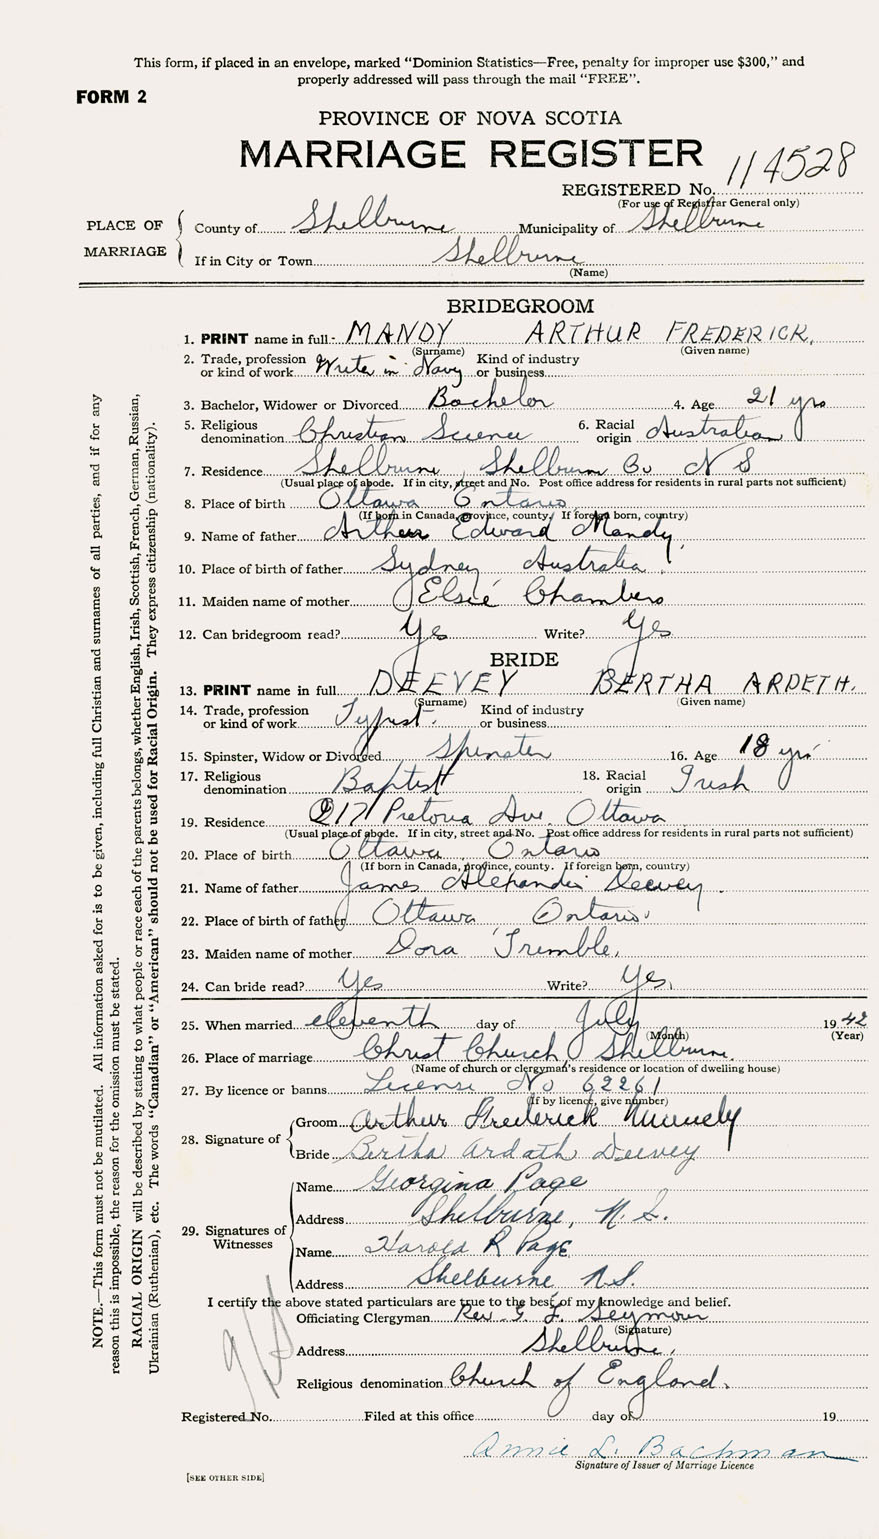 This form, if placed in an envelope, marked "Dominion Statistics—Free, penalty for improper use $300," and
properly addressed will pass through the mail "FREE".
FORM 2
PROVINCE OF NOVA SCOTIA
MARRIAGE REGISTER
REGISTERED No. 114528
(For use of Registrar General only)
PLACE OF MARRIAGE
County of Shelburne Municipality of Shelburne
If in City or Town Shelburne
(Name)
BRIDEGROOM
1. PRINT name in full:- MANDY ARTHUR FREDERICK,
(Surname) (Given name)
2. Trade, profession or kind of work Writer in Navy Kind of industry or business
3. Bachelor, Widower or Divorced Bachelor 4. Age 21 yrs
5. Religious denomination Christian Science 6. Racial origin Australian
7. Residence Shelburne, Shelburne Co N S
(Usual place of abode. If in city, street and No. Post office address for residents in rural parts not sufficient)
8. Place of birth Ottawa Ontario
(If born in Canada, province, county. If foreign born, country)
9. Name of father Arthur Edward Mandy
10. Place of birth of father Sydney Australia
11. Maiden name of mother Elsie Chambers
12. Can bridegroom read? Yes Write? Yes
BRIDE
13. PRINT name in full DEEVEY BERTHA ARDETH.
(Surname) (Given name)
14. Trade, profession or kind of work Typist. Kind of industry or business
15. Spinster, Widow or Divorced Spinster 16. Age 18 yrs
17. Religious denomination Baptist 18. Racial origin Irish
19. Residence 217 Pretoria Ave. Ottawa
(Usual place of abode. If in city, street and No. Post office address for residents in rural parts not sufficient)
20. Place of birth Ottawa Ontario
(If born in Canada, province, county. If foreign born, country)
21. Name of father James Alexander Deevey.
22. Place of birth of father Ottawa Ontario
23. Maiden name of mother Dora Trimble,
24. Can bride read? Yes Write? Yes,
25. When married eleventh day of July 1942
(Month) (Year)
26. Place of marriage Christ Church, Shelburne.
(Name of church or clergyman's residence or location of dwelling house)
27. By licence or banns License No 62261
(If by licence, give number)
28. Signature of
Groom Arthur Frederick Mandy
Bride Bertha Ardath Deevey
29. Signatures of Witnesses
Name Georgina Page
Address Shelburne, N.S.
Name Harold R Page
Address Shelburne N.S.
I certify the above stated particulars are true to the best of my knowledge and belief.
Officiating Clergyman Rev. G. F. Seymour
(Signature)
Address Shelburne,
Religious denomination Church of England.
Registered No. Filed at this office day of 19
Annie L. Bachman
Signature of Issuer of Marriage Licence
[SEE OTHER SIDE]
NOTE.—This form must not be mutilated. All information asked for is to be given, including full Christian and surnames of all parties, and if for any
reason this is impossible, the reason for the omission must be stated.
RACIAL ORIGIN will be described by stating to what people or race each of the parents belongs, whether English, Irish, Scottish, French, German, Russian,
Ukrainian (Ruthenian), etc. The words "Canadian" or "American" should not be used for Racial Origin. They express citizenship (nationality).